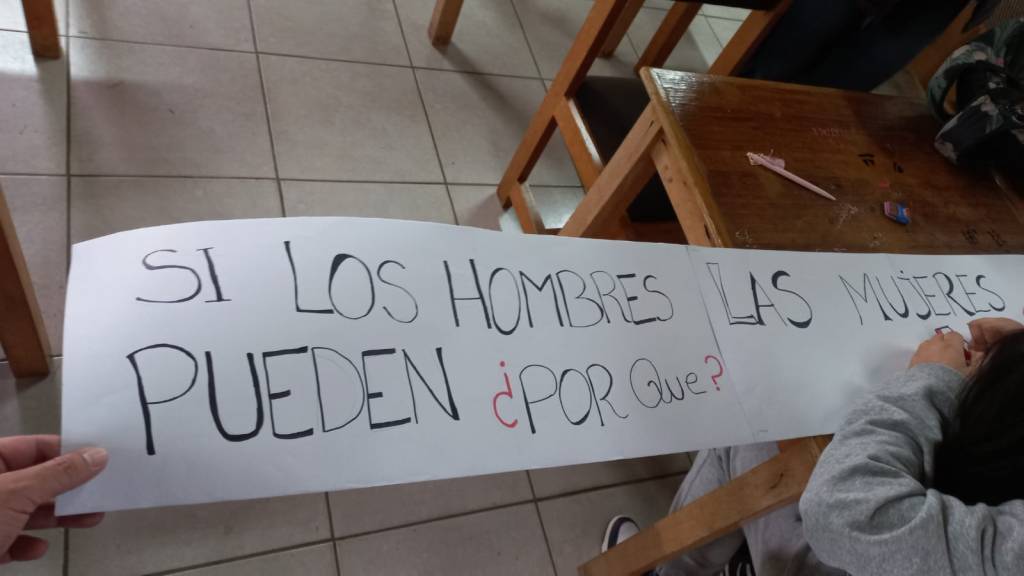 SI LOS HOMBRES LAS MUJERES
PUEDEN ¿POR Que?